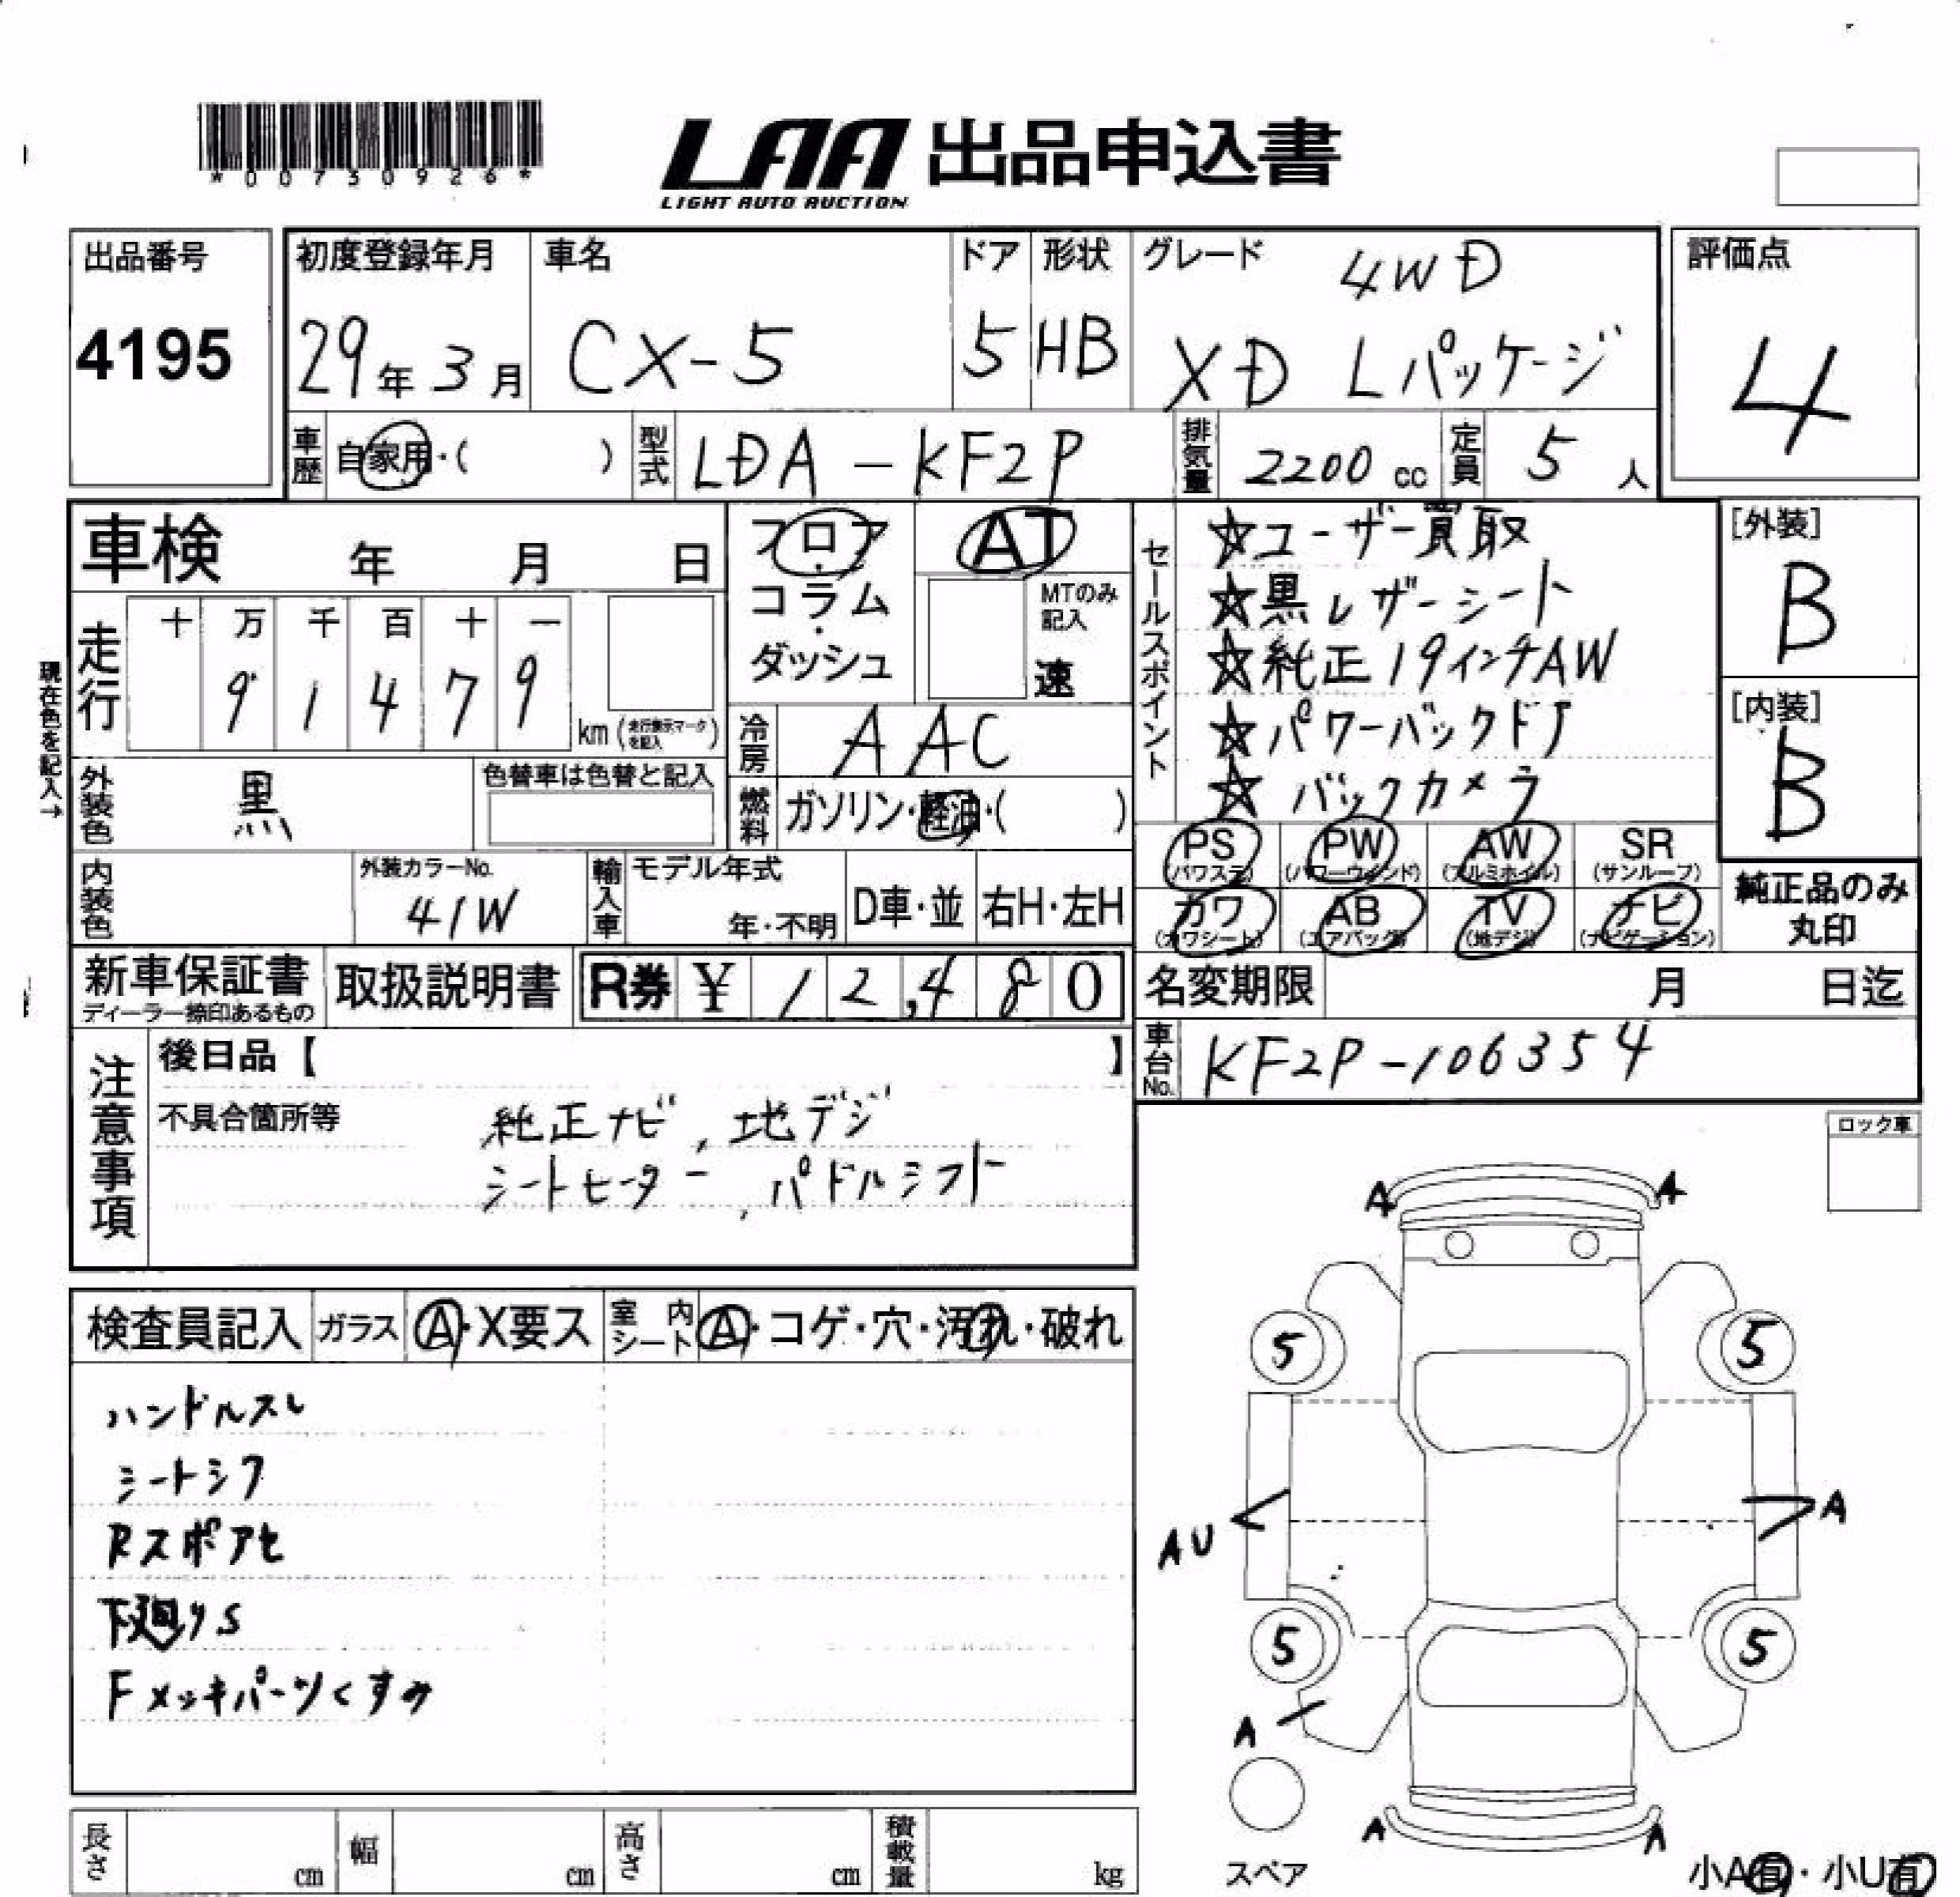 *00730926*
LAA 出品申込書
LIGHT AUTO AUCTION
出品番号
4195
初度登録年月
29年3月
車名
CX-5
ドア
5
形状
HB
グレード
4WD
XD Lパッケージ
評価点
4
車歴
自家用・( )
型式
LDA-KF2P
排気量
2200 cc
定員
5 人
車検 年 月 日
フロア・コラム・ダッシュ
AT
MTのみ記入
速
セールスポイント
☆ユーザー買取
☆黒レザーシート
☆純正19インチAW
☆パワーバックドア
☆バックカメラ
[外装]
B
[内装]
B
現在色を記入→
走行
十 万 千 百 十 一
9 1 4 7 9
km(走行表示マークを記入)
冷房
AAC
外装色
黒
色替車は色替と記入
燃料
ガソリン・軽油・( )
PS
(パワステ)
PW
(パワーウィンド)
AW
(アルミホイル)
SR
(サンルーフ)
カワ
(カワシート)
AB
(エアバッグ)
TV
(地デジ)
ナビ
(ナビゲーション)
純正品のみ
丸印
内装色
外装カラーNo.
41W
輸入車
モデル年式
年・不明
D車・並
右H・左H
新車保証書
ディーラー捺印あるもの
取扱説明書
R券 ¥12,480
名変期限 月 日迄
車台No.
KF2P-106354
注意事項
後日品【 】
不具合箇所等
純正ナビ, 地デジ
シートヒーター, パドルシフト
ロック車
検査員記入
ガラス
A・X要ス
室内シート
A・コゲ・穴・汚れ・破れ
ハンドルスレ
シートシワ
Rスポアセ
下廻りS
Fメッキパーツくすみ
A A
5 5
AU A
5 5
A
A A
スペア
小A有・小U有
長さ cm
幅 cm
高さ cm
積載量 kg